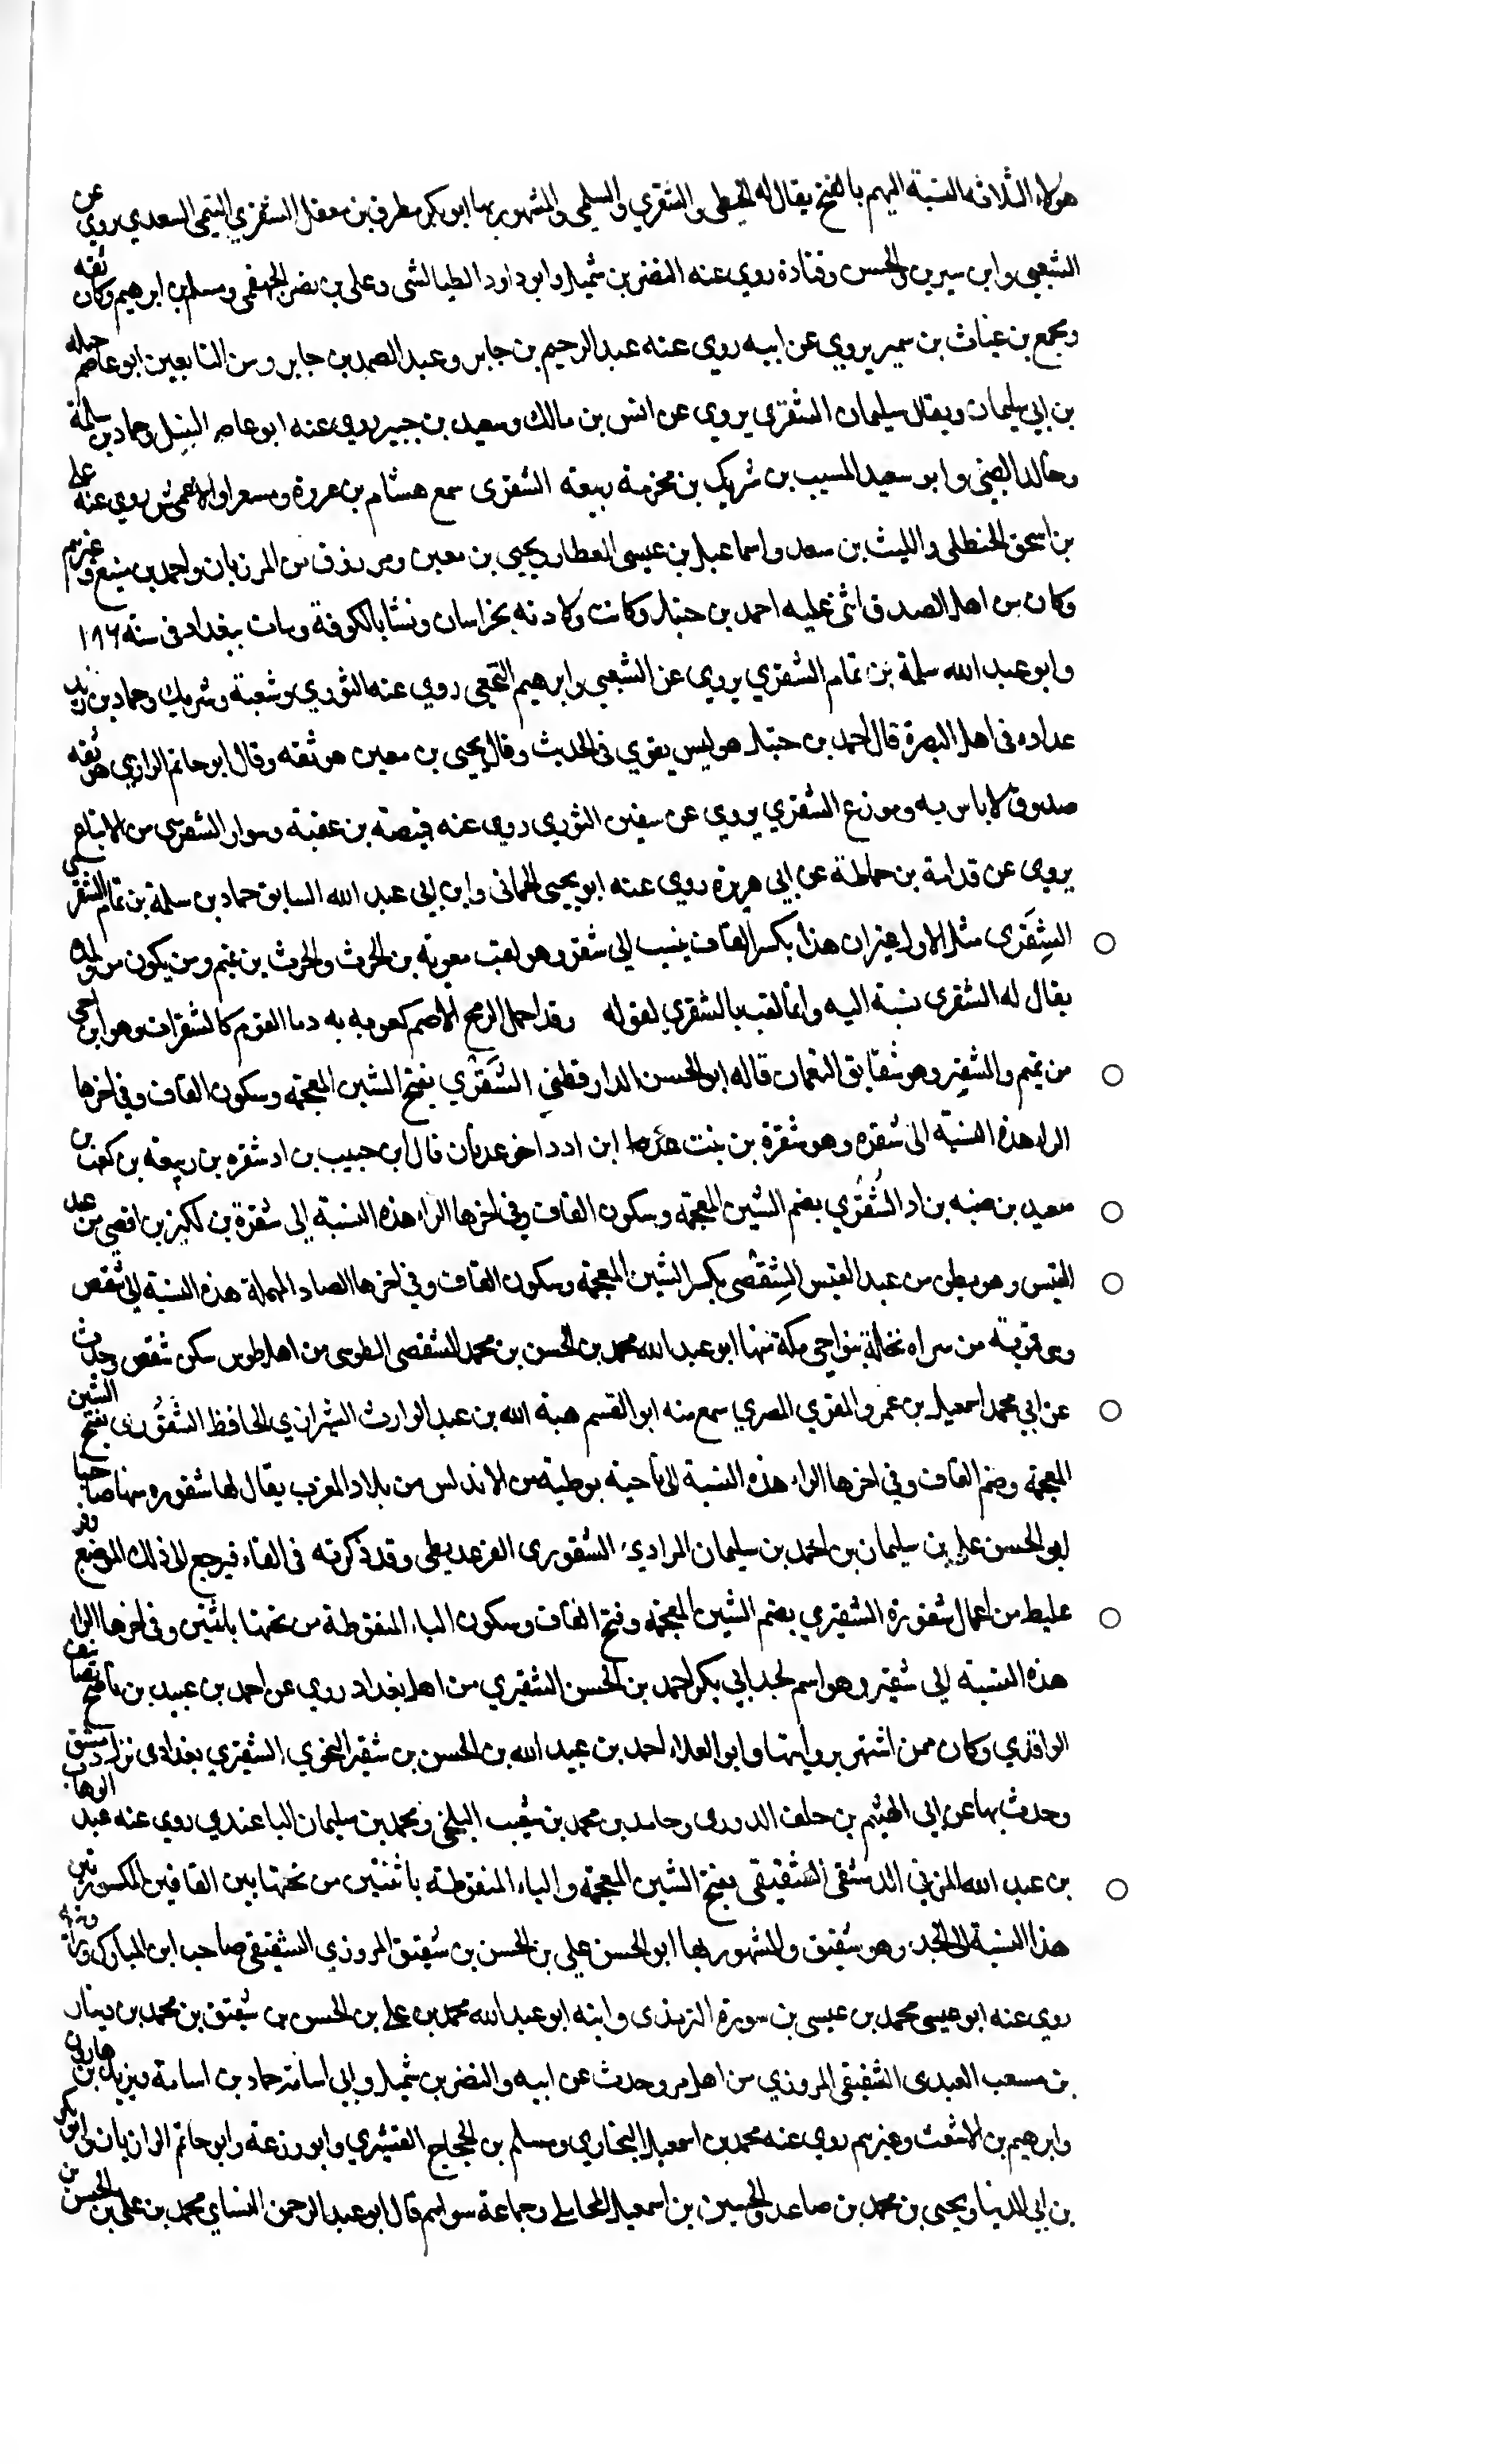 هولاء الثلاثة النسبة اليهم بالفتح يقال له الحبطي والشقري والسلمي والمشهور بها ابو بكر مطرف بن معقل الشقري التيمي السعدي يروي عن
الشعبي وابن سيرين والحسن وقتادة روي عنه النضر بن شميل وابو داود الطيالسي وعلي بن نصر الجهضمي ومسلم بن ابرهيم وكان ثقه
ومجمع بن عتاب بن سمير يروي عن ابيه روي عنه عبد الرحيم بن جابر وعبد الصمد بن جابر ومن التابعين ابو عاصم جبله
بن ابي سليمان ويقال سليمان الشقري يروي عن انس بن مالك وسعيد بن جبير روي عنه ابو عاصم النبيل وحماد بن سلمة
وخالد الضبي وابو سعيد المسيب بن شريك بن مخرمة ربيعة الشقري سمع هشام بن عروة ومسعرا والاعمش روي عنه علي
بن اسحق الحنظلي والليث بن سعد واسماعيل بن عيسى العطار ويحيى بن معين ومرزوق بن المرزبان واحمد بن منيع وغيرهم
وكان من اهل الصدق اثنى عليه احمد بن حنبل وكانت ولادته بخراسان ونشا بالكوفة ومات ببغداد في سنة ١٨٦
وابو عبد الله سلمة بن تمام الشقري يروي عن الشعبي وابرهيم النخعي روي عنه الثوري وشعبة وشريك وحماد بن زيد
عداده في اهل البصرة قال احمد بن حنبل هو ليس بقوي في الحديث وقال يحيى بن معين هو ثقه وقال ابو حاتم الرازي هو ثقه
صدوق لا باس به ومورع الشقري يروي عن سفين الثوري روي عنه قبيصة بن عقبة وسوار الشقري من الاتباع
يروي عن قدامة بن حماطة عن ابي هريرة روي عنه ابو يحيى الحماني وابن ابي عبد الله السابق حماد بن سلمة بن تمام الشقري
الشِقَرى مثل الاول غير ان هذا بكسر القاف ينسب الي شقر وهو لقب معوية بن الحرث والحرث بن تميم ومن يكون من ولده
يقال له الشقري نسبة اليه وانما لقب بالشقري لقوله وقد احمل الرمح الاصم كعوبه به دما القوم كالشقرات وهو ابن اخي
من تميم والشقر وهو شقايق النعمان قاله ابو الحسن الدارقطني الشَقْري بفتح الشين المعجمة وسكون القاف وفي اخرها
الراء هذه النسبة الى شقره وهو شقرة بن بنت ابن ادد اخو عدنان قال ابن حبيب بن اد شقره بن ربيعة بن كعب بن
سعيد بن ضبه بن اد الشُقْري بضم الشين المعجمة وسكون القاف وفي اخرها الراء هذه النسبة الى شقرة بن لكيز بن افصى من عبد
القيس وهو بطن من عبد القيس الشِقْصى بكسر الشين المعجمة وسكون القاف وفي اخرها الصاد المهملة هذه النسبة الي شقص
وهي قرية من سراه نخلة بنواحي مكة منها ابو عبد الله محمد بن الحسن بن محمد الشقصي الطوسي من اهل طوس سكن شقص وحدث
عن ابي محمد اسمعيل بن عمرو المقري المصري سمع منه ابو القسم هبة الله بن عبد الوارث الشيرازي الحافظ الشقُورى بفتح الشين
المعجمة وضم القاف وفي اخرها الراء هذه النسبة الى ناحية بوطية من الاندلس من بلاد المغرب يقال لها شقوره منها صاحبنا
ابو الحسن علي بن سليمان بن احمد بن سليمان المرادي الشقوري الفرغليطي وقد ذكرته في الفاء فيرجع الى ذلك الموضع وفر
غليط من اعمال شقورة الشقيري بضم الشين المعجمة وفتح القاف وسكون الياء المنقوطة من تحتها باثنتين وفي اخرها الراء
هذه النسبة الى شقير وهو اسم لجد ابي بكر احمد بن الحسن الشقيري من اهل بغداد روي عن احمد بن عبيد بن ناصح تصانيف
الواقدي وكان ممن اشتهر بروايتها وابو العلاء احمد بن عبيد الله بن الحسن بن شقير النحوي الشقيري بغدادي نزل دمشق
وحدث بها عن ابي الهيثم بن خلف الدوري وحامد بن محمد بن شعيب البلخي ومحمد بن سليمان الباغندي روي عنه عبد الوهاب
بن عبد الله المزني الدمشقي الشقيقي بفتح الشين المعجمة والياء المنقوطة باثنتين من تحتها بين القافين المكسورتين
هذا النسبة الى الجد وهو شقيق والمشهور بها ابو الحسن علي بن الحسن بن شقيق المروزي الشقيقي صاحب ابن المبارك وراويه
روي عنه ابو عيسى محمد بن عيسى بن سورة الترمذى وابنه ابو عبد الله محمد بن علي بن الحسن بن شقيق بن محمد بن دينار
بن مسعب العبدى الشقيقي المروزي من اهل مرو حدث عن ابيه والنضر بن شميل وابي اسامة حماد بن اسامة ويزيد بن هارون
وابرهيم بن الاشعث وغيرهم روي عنه محمد بن اسمعيل البخاري ومسلم بن الحجاج القشيري وابو زرعة وابو حاتم الرازيان وابو بكر
بن ابي الدنيا ويحيى بن محمد بن صاعد والحسين بن اسمعيل المحاملي وجماعة سواهم قال ابو عبد الرحمن النساي محمد بن علي بن الحسن بن